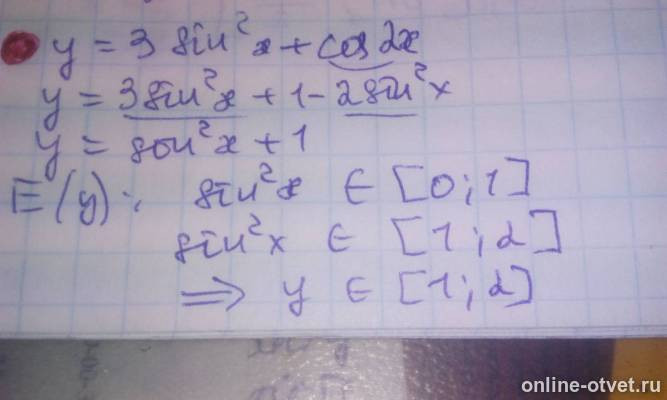 y = 3 sin²x + cos 2x
y = 3sin²x + 1 - 2sin²x
y = sin²x + 1
E(y): sin²x ∈ [0; 1]
sin²x ∈ [1; 2]
⇒ y ∈ [1; 2]
online-otvet.ru